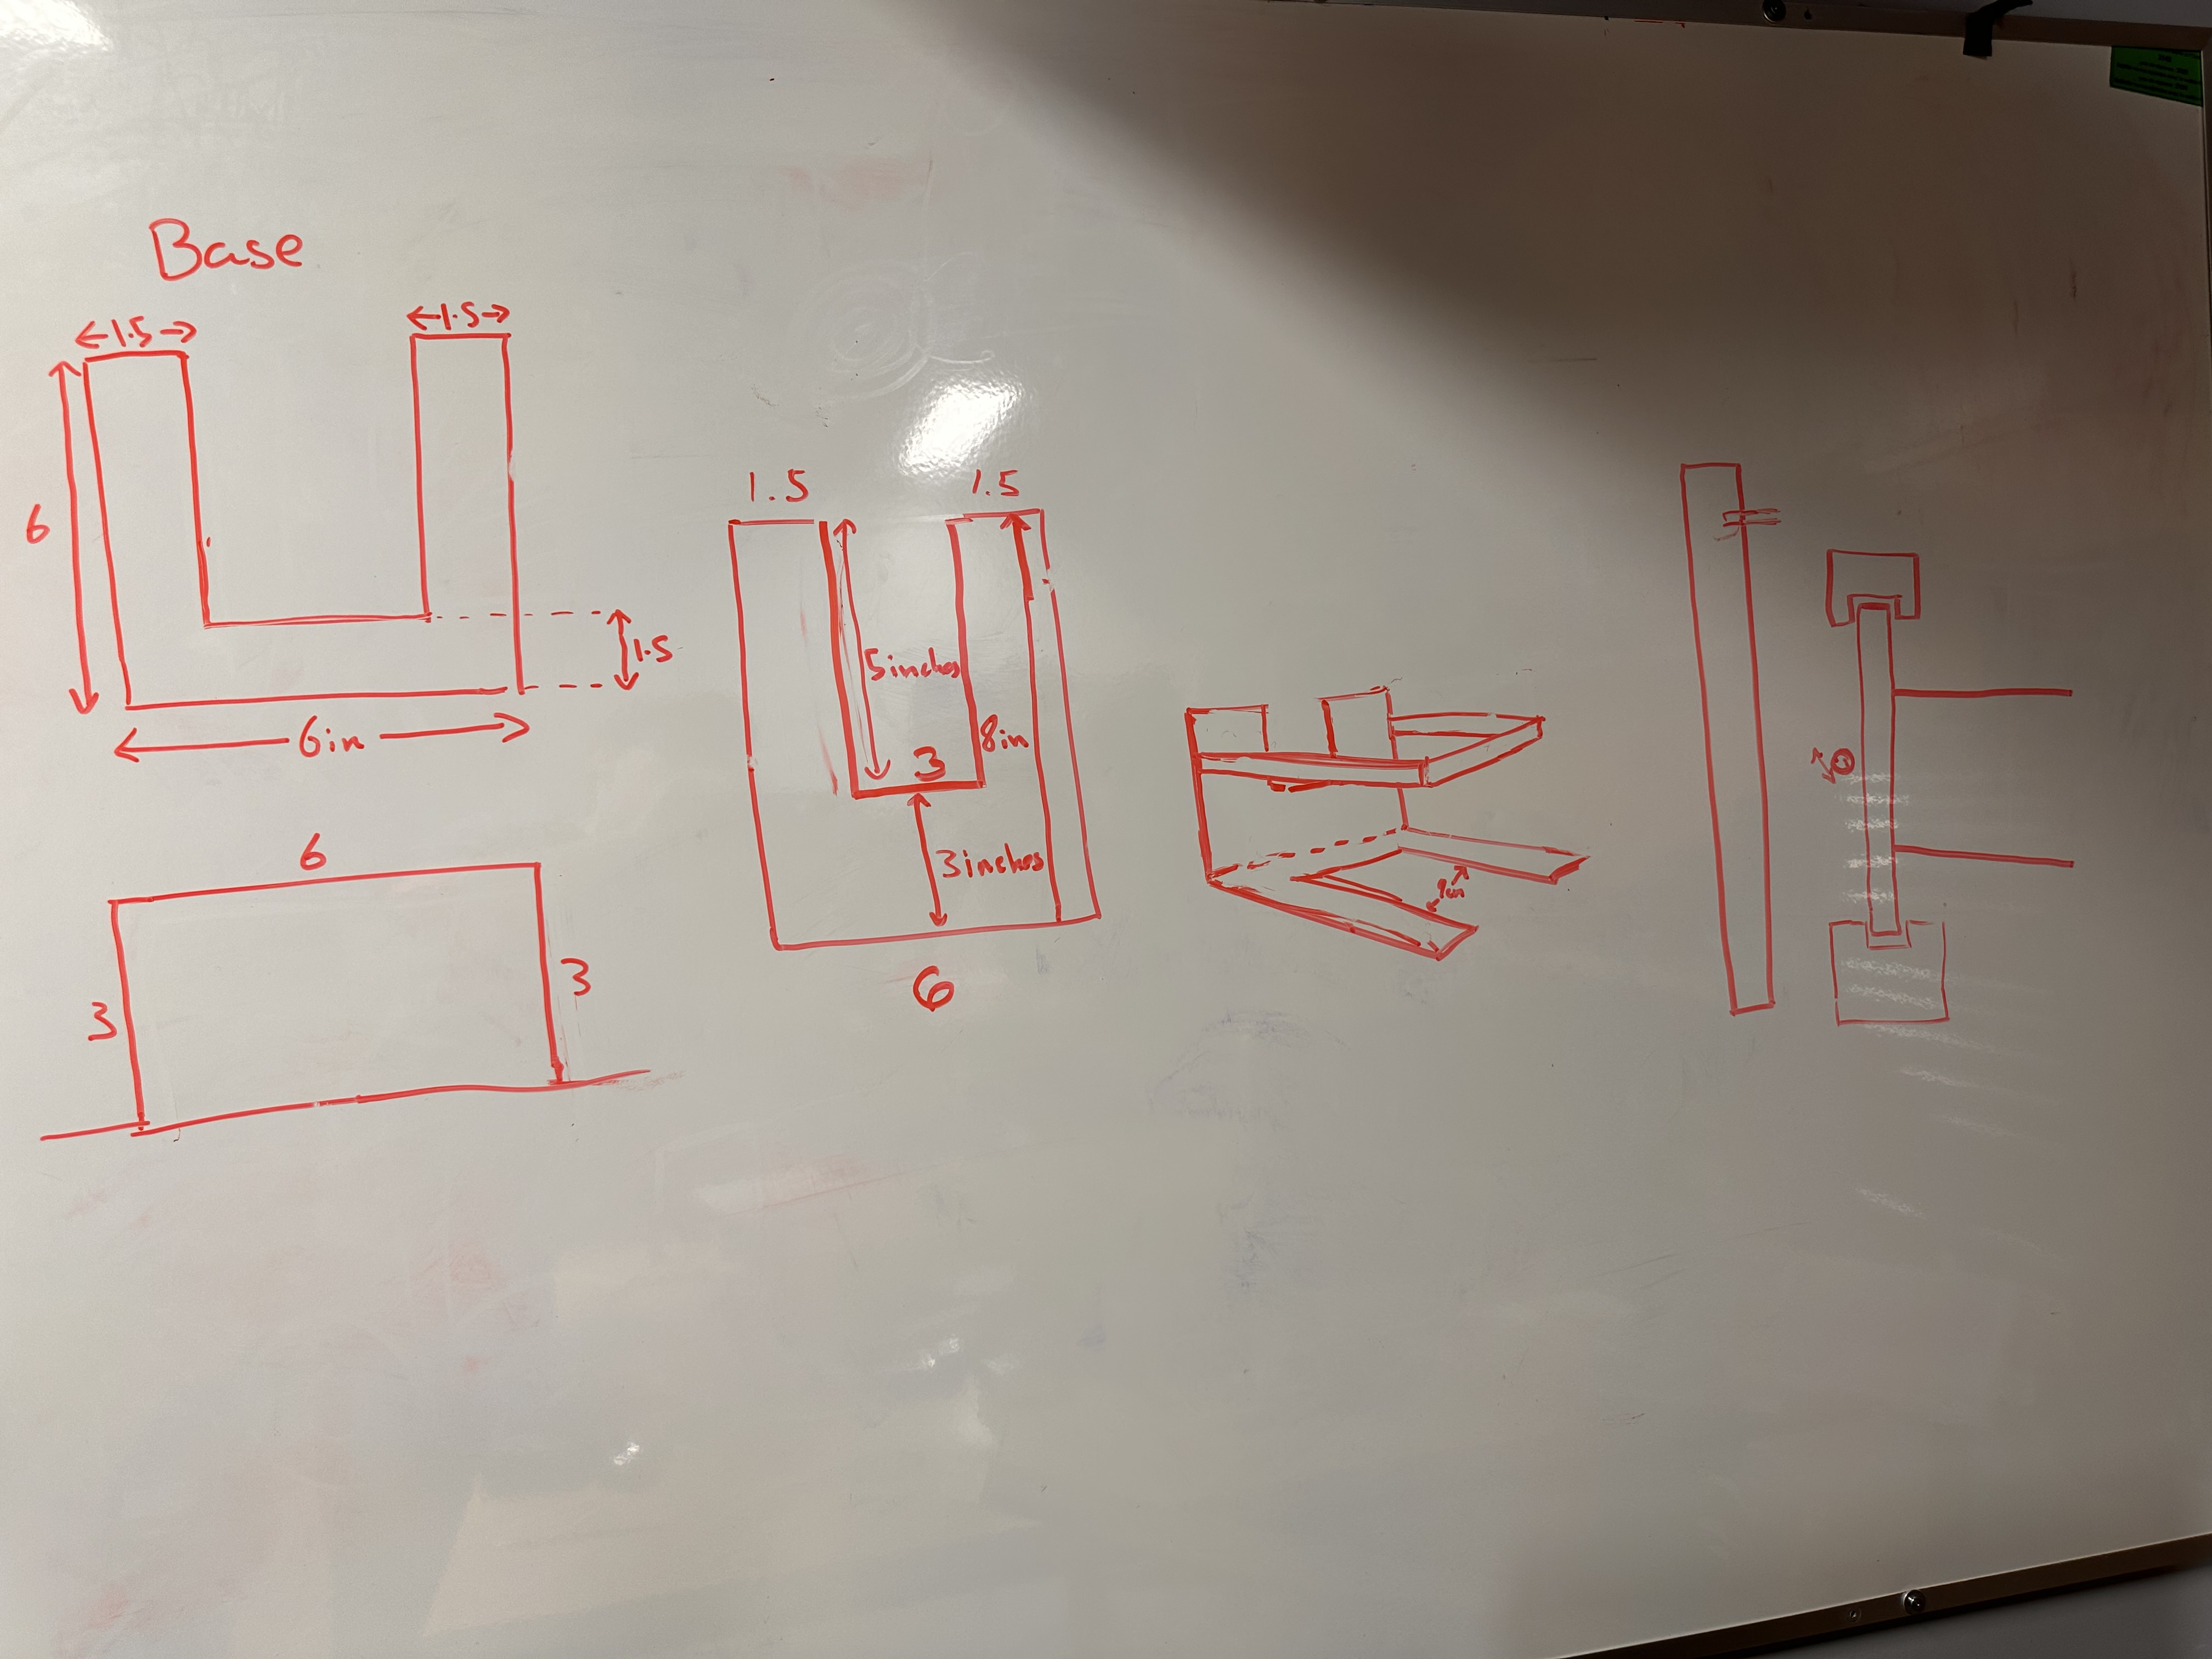 Base
1.5
1.5
6
1.5
6in
6
3
3
1.5
1.5
5inches
8in
3
3inches
6